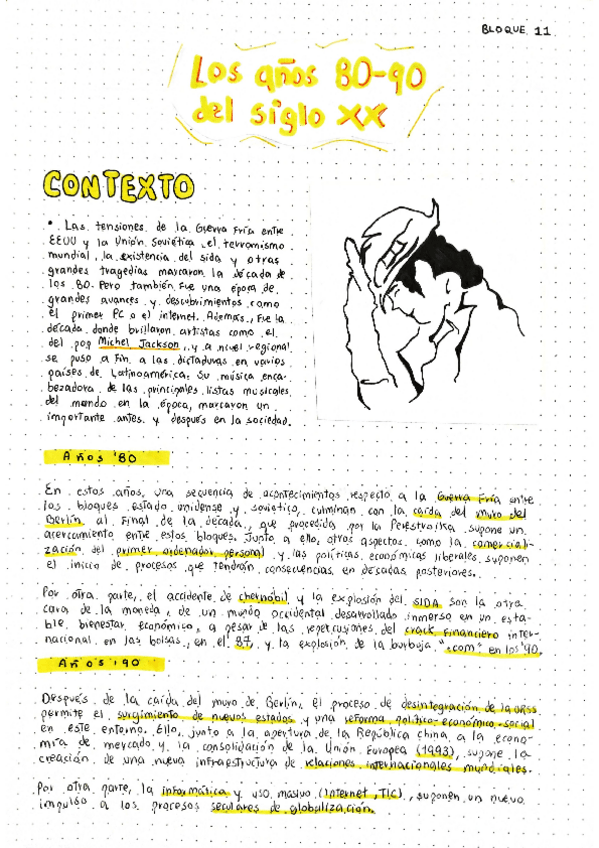 BLOQUE 11
Los años 80-90
del siglo XX
CONTEXTO
• Las tensiones de la Guerra Fría entre
EEUU y la Unión Soviética, el terromismo
mundial, la existencia del sida y otras
grandes tragedias marcaron la década de
los 80. Pero también fue una época de
grandes avances y descubrimientos como
el primer PC o el internet. Además, fue la
década donde brillaron artistas como el
del pop Michel Jackson, y a nivel regional
se puso a fin a las dictaduras en varios
países de Latinoamérica. Su música enca-
bezadora de las principales listas musicales
del mondo en la época, marcaron un
importante antes y después en la sociedad.
Años '80
En estos años, una secuencia de acontecimientos respecto a la Guerra Fría entre
los bloques estado unidense y soviético, culminan con la caída del muro del
Berlín al final de la década, que procedida por la Perestroika supone un
acercamiento entre estos bloques. Junto a ello, otros aspectos como la comerciali-
zación del primer ordenador personal y las políticas económicas liberales suponen
el inicio de procesos que tendrán consecuencias en décadas posteriores.
Por otra parte, el accidente de chernóbil y la explosión del SIDA son la otra
cara de la moneda, de un mundo occidental desarrollado inmerso en un esta-
ble bienestar económico, a pesar de las repercusiones del crack financiero inter-
nacional en las bolsas, en el 87, y la explosión de la burbuja ".com" en los '90.
Años '90
Después de la caída del muro de Berlín, el proceso de desintegración de la URSS
permite el surgimiento de nuevos estados y una reforma político-económico-social
en este entorno. Ello, junto a la apertura de la República china a la econo-
mía de mercado y la consolidación de la Unión Europea (1993), supone la
creación de una nueva infraestructura de relaciones internacionales mundiales.
Por otra parte, la informática y uso masivo (Internet, TIC), suponen un nuevo
impulso a los procesos seculares de globalización.